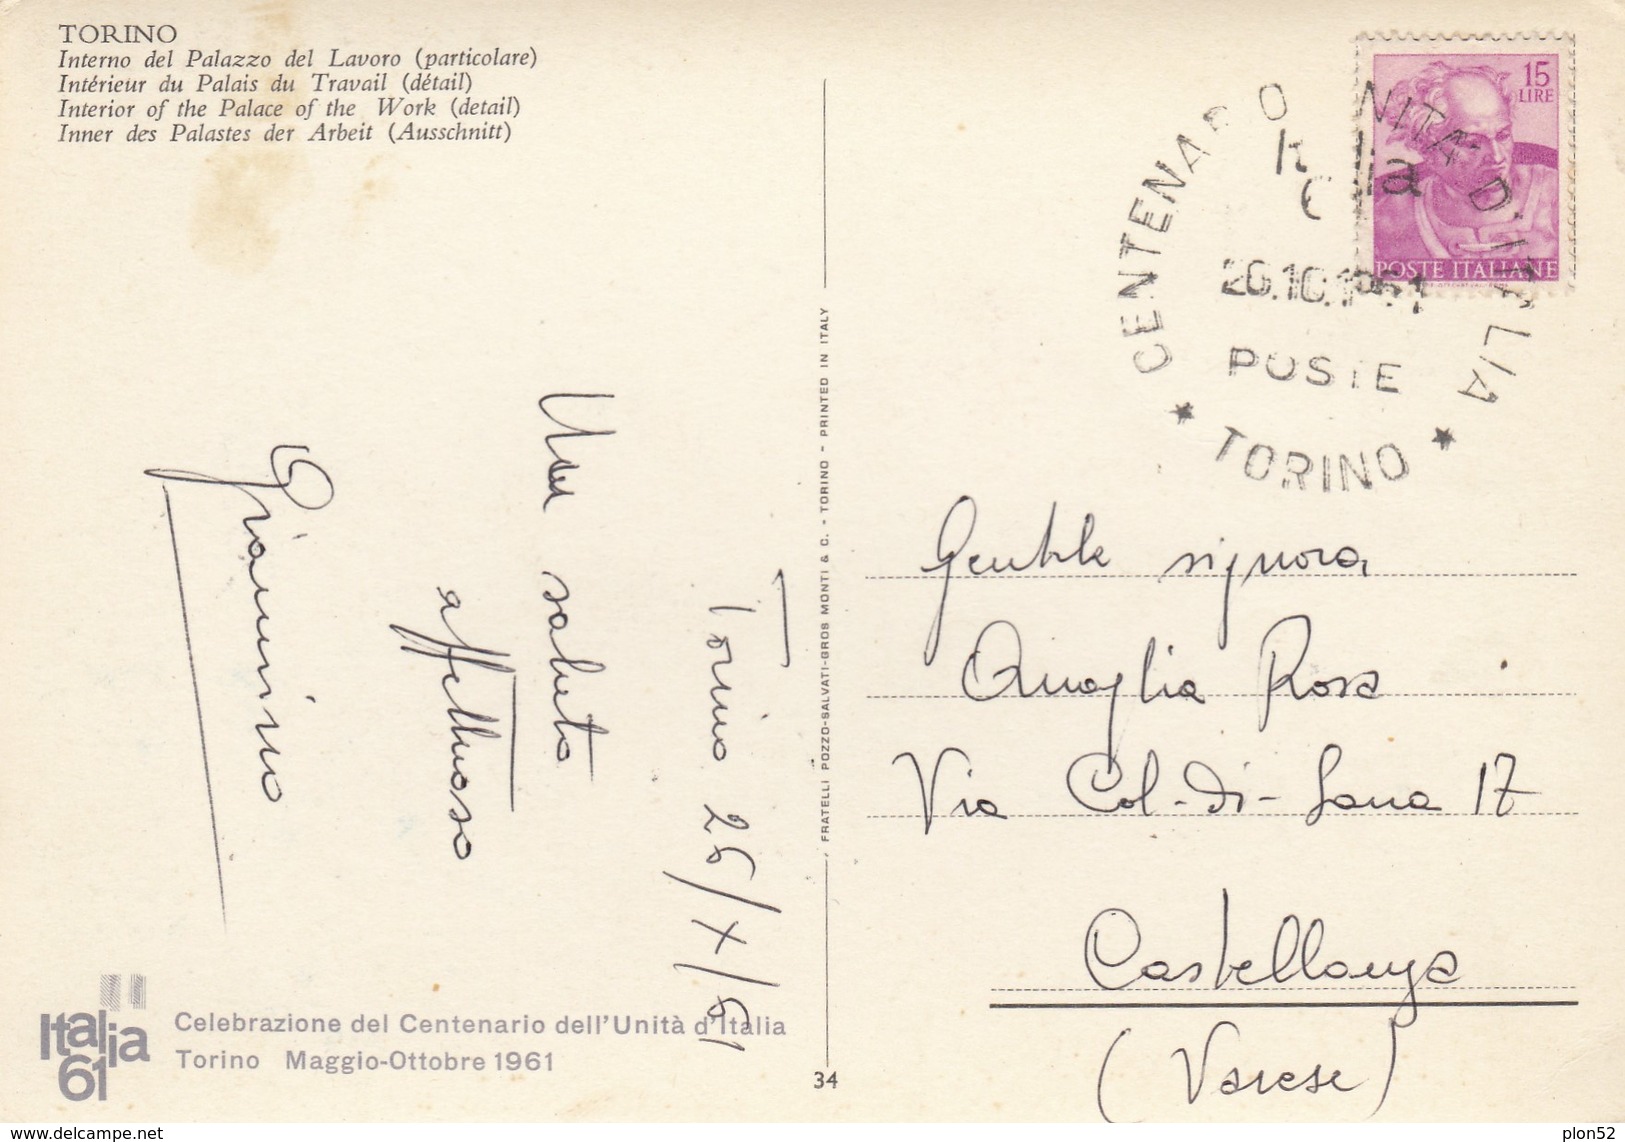 TORINO
Interno del Palazzo del Lavoro (particolare)
Intérieur du Palais du Travail (détail)
Interior of the Palace of the Work (detail)
Inner des Palastes der Arbeit (Ausschnitt)
15
LIRE
POSTE ITALIANE
CENTENARIO UNITA D'ITALIA
Italia
6
26.10.1961
POSTE
* TORINO *
Torino 26/X/61
Un saluto
affettuoso
Giannino
Gentile signora
Quaglia Rosa
Via Col-di-Lana 17
Castellanza
(Varese)
FRATELLI POZZO-SALVATI-GROS MONTI & C. - TORINO - PRINTED IN ITALY
Italia
61
Celebrazione del Centenario dell'Unità d'Italia
Torino Maggio-Ottobre 1961
34
http://www.delcampe.net
plon52